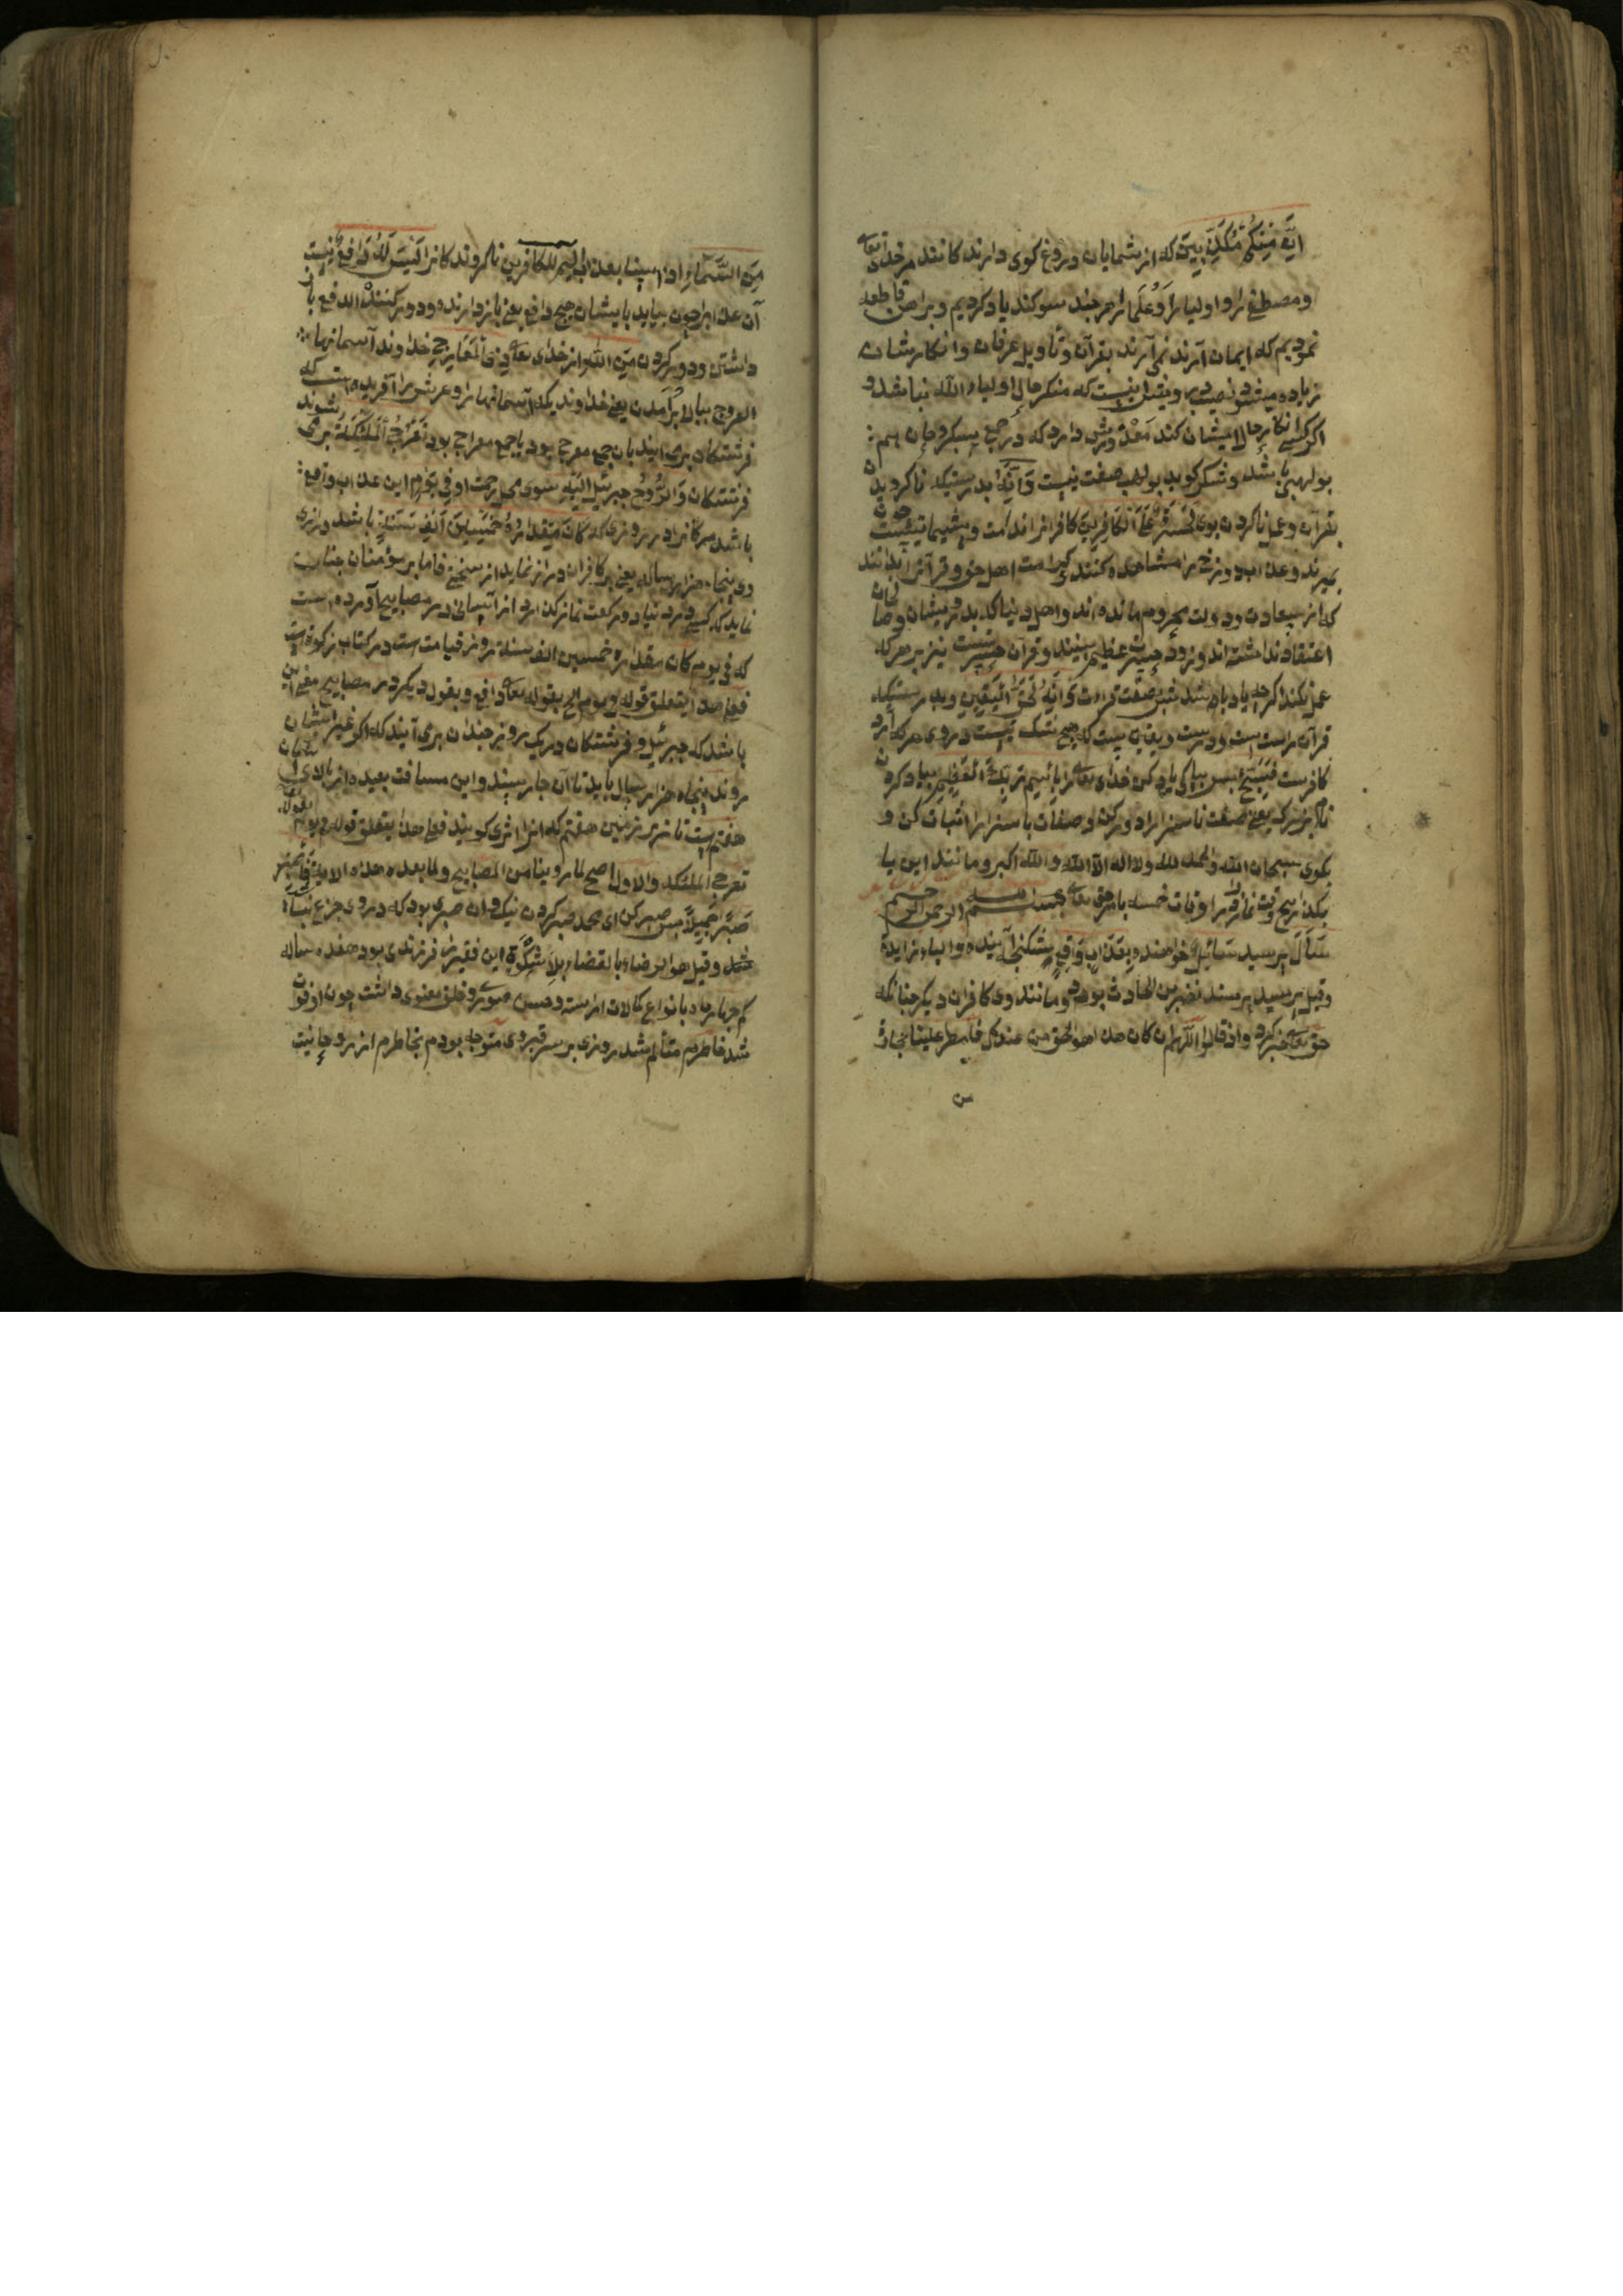 اَنَّ مِنكُم مُّكَذِّبِينَ که از شمایان دروغ کوی دارند کانند مر خدای تعالی
ومصطفی را و اولیا را وعلما را هر چند سوکند یاد کردیم وبراهین قاطعه
نمودیم که ایمان آرند نمی آرند بقرآن وتاویل عرفان وانکار شان
زیاده میشود ویقین اینست که منکر حال اولیاء الله نباشد و
اکر کسی انکار حال ایشان کند معذورش دارد که در جمع
بولهبی باشد وَاِنَّهُ بدرستیکه ناکرویدن
بقرآن وعمل ناکردن بوی لَحَسْرَةٌ عَلَى الْكَافِرِينَ کافرانرا ندامت وپشیمانیست چون
بمیرند وعذاب دوزخ را مشاهده کنند کرامت اهل حق وقرآنرا بدانند
که از سعادت ودولت محروم مانده اند واهل دنیا که بدرویشان وصالحان
اعتقاد نداشته اند وقرآن حسرتست نیز بر هر که
عمل نکند اکرچه یاد باشد وَاِنَّهُ لَحَقُّ الْيَقِينِ وبدرستیکه
قرآن راست است ودرست ویقین است که هیچ شک نیست در وی هر که آرد
کافرست فَسَبِّحْ پس بپاکی یاد کن خدای تعالی را بِاسْمِ رَبِّكَ الْعَظِيمِ بیاد کردن
نام بزرک یعنی صفت ناسزا را دور کن وصفات باسزا را اثبات کن و
بکوی سبحان الله والحمد لله ولا اله الا الله والله اکبر ومانند این یا
بکذار پنج وقت نماز در اوقات خمسه بامر حق تعالی بسم الله الرحمن الرحیم
سَاَلَ پرسید سَائِلٌ خواهنده بِعَذَابٍ وَاقِعٍ بشکنجه آینده والباء زایدة
وقیل پرسید پرسنده نضر بن الحارث بود ومانند وی کافران دیکر چنانکه
حق تعالی خبر کرد واذ قالوا اللهم ان کان هذا هو الحق من عندک فامطر علینا حجارة
من السَّمَاءِ او ائتنا بعذاب الیم لِلْكَافِرِينَ ناکروندکانرا لَيْسَ لَهُ دَافِعٌ نیست
آن عذابرا چون بیاید بایشان هیچ دافع یعنی بازدارنده ودور کننده الدفع باز
داشتن ودور کردن مِنَ اللهِ از خدای تعالی ذِى الْمَعَارِجِ خداوند آسمانها
العروج ببالا برآمدن یعنی خداوندیکه آسمانها را وعرش را آفریده است که
فرشتکان برمی آیند بآن جمع معرج بود یا جمع معراج بود تَعْرُجُ الْمَلٰئِكَةُ برمی شوند
فرشتکان وَالرُّوحُ جبرئیل اِلَيْهِ سوی محل رحمت او فِى يَوْمٍ این عذاب واقع
باشد مر کافرانرا در روزی که كَانَ مِقْدَارُهُ خَمْسِينَ اَلْفَ سَنَةٍ باشد درازی
وی پنجاه هزار ساله یعنی بر کافران دراز نماید از سختی فاما بر مؤمنان چنان
نماید که کسی در دنیا دو رکعت نماز کذارد از آسانی در مصابیح آورده است
که فی یوم کان مقداره خمسین الف سنة روز قیامت است در کتاب زکوة است
فعلی هذا یتعلق قوله فی یوم الخ بقوله تعالی واقع وبقول دیکر در مصابیح معنی این
باشد که جبرئیل وفرشتکان در یک روز چندان برمی آیند که اکر غیر ایشان
روند پنجاه هزار سال باید تا آن جا رسند واین مسافت بعیده از بالای آسمان
هفتم است تا زیر زمین هفتم که انرا ثری کویند فعلی هذا یتعلق قوله فی یوم بقوله
تعرج الملئکة والاول اصح لما روینا من المصابیح ولما بعده هذه الایة فَاصْبِرْ
صَبْرًا جَمِيلًا پس صبر کن ای محمد صبر کردن نیک وآن صبری بود که در وی جزع نباشد
وقیل هو الرضاء بالقضاء بلا شکوة این فقیر را فرزندی بود هفده ساله
بانواع کمالات اراسته وحسن صوری وخلق معنوی داشت چون او فوت
شد خاطرم متألم شد روزی بر سر قبر وی متوجه بودم بخاطرم از روحانیت